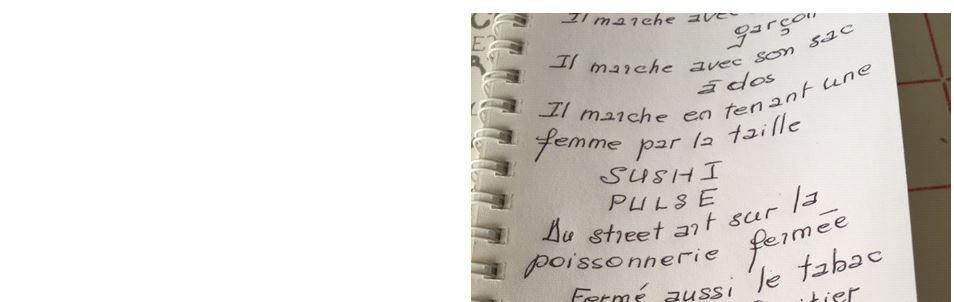 Il marche avec
garçon
Il marche avec son sac
à dos
Il marche en tenant une
femme par la taille
SUSHI
PULSE
Du street art sur la
poissonnerie fermée
Fermé aussi le tabac